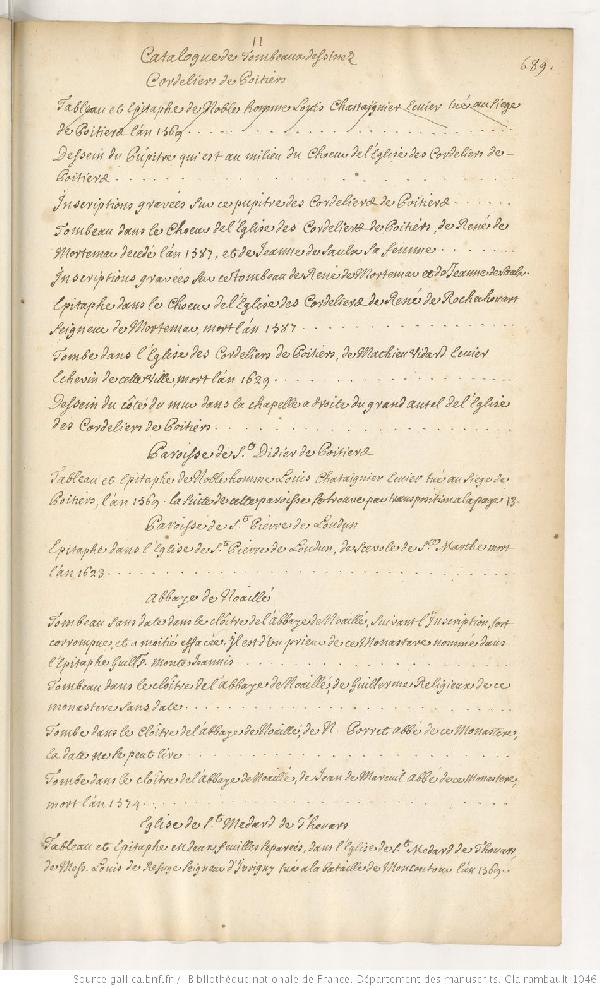 11
689.
Catalogue des Tombeaux dessinez
Cordeliers de Poitiers
Tableau et Epitaphe de Noble homme Loüis Chataignier Ecuier tué au siege
de Poitiers l'an 1569
Dessein du Pupitre qui est au milieu du Choeur de l'Eglise des Cordeliers de
Poitiers
Inscriptions gravées sur ce pupitre des Cordeliers de Poitiers
Tombeau dans le Choeur de l'Eglise des Cordeliers de Poitiers, de René de
Mortemar decedé l'an 1587, et de Jeanne de Saulx sa femme
Inscriptions gravées sur ce tombeau de René de Mortemar et de Jeanne de Saulx.
Epitaphe dans le Choeur de l'Eglise des Cordeliers de René de Rochechouart
Seigneur de Mortemar, mort l'an 1587
Tombe dans l'Eglise des Cordeliers de Poitiers, de Mathieu Vidard Ecuier
Echevin de cette Ville, mort l'an 1629
Dessein du côté du mur dans la chapelle a droite du grand autel de l'Eglise
des Cordeliers de Poitiers
Paroisse de St Didier de Poitiers
Tableau et Epitaphe de Noble homme Louis Chataignier Ecuier tué au siege de
Poitiers, l'an 1569. la suite de cette paroisse se trouve par transposition a la page 13.
Paroisse de St Pierre de Loudun
Epitaphe dans l'Eglise de St Pierre de Loudun, de Scevole de Ste Marthe mort
l'an 1623
Abbaye de Noaillé
Tombeau sans date dans le cloître de l'abbaye de Noaillé, suivant l'Inscription fort
corrompue, et a moitié effacée. Il est d'un prieur de ce Monastere nommé dans
l'Epitaphe Guills. Monte Joannis
Tombeau dans le cloître de l'abbaye de Noaillé, de Guillerme Religieux de ce
monastere sans date
Tombe dans le cloître de l'abbaye de Noaillé, de N. Porret abbé de ce Monastere,
la date ne se peut lire
Tombe dans le cloître de l'abbaye de Noaillé, de Jean de Mareuil abbé de ce Monastere,
mort l'an 1574
Eglise de St Medard de Thouars
Tableau et Epitaphe en deux feuilles separées, dans l'Eglise de St Medard de Thouars,
de Mess. Louis de Refuge Seigneur d'Jvrigny tué a la bataille de Moncontour l'an 1569.
Source gallica.bnf.fr / Bibliothèque nationale de France. Département des manuscrits. Clairambault 1046